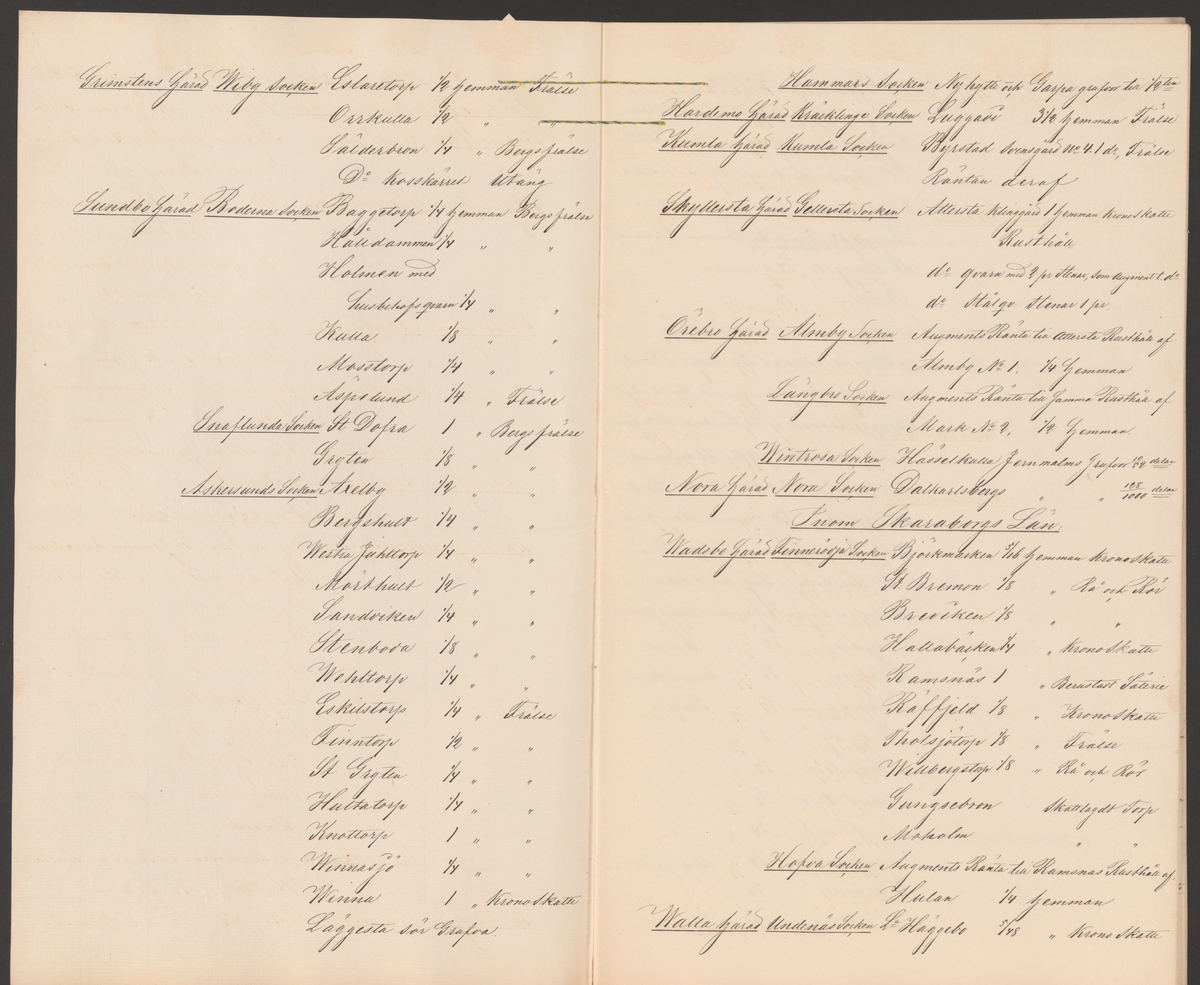 Grimstens Härad Wiby Socken Eslaretorp 1/2 Hemman Frälse
Orrkulla 1/2 " "
Sälderbron 1/4 " Bergsfrälse
Do Kosskärret Utäng
Sundbo Härad Boderna Socken Baggetorp 1/4 Hemman Bergsfrälse
Hålldammen 1/4 " "
Holmen med
husbehofs qvarn 1/4 " "
Kulla 1/8 " "
Mosstorp 1/4 " "
Äspelund 1/4 " Frälse
Snaflunda Socken St Dofra 1 " Bergsfrälse
Gryten 1/8 " "
Askersunds Socken Axelby 1/2 " "
Bergshult 1/4 " "
Westra Juhltorp 1/4 " "
Mörthult 1/2 " "
Sandviken 1/4 " "
Stenboda 1/8 " "
Wehltorp 1/4 " "
Eskilstorp 1/4 " Frälse
Finntorp 1/2 " "
St Gryten 1/4 " "
Hultatorp 1/4 " "
Knottorp 1 " "
Winnasjö 1/4 " "
Winna 1 " Krono Skatte
Läggesta sör Grafva.
Hammars Socken Nyhytte och Garpa grufvor till 1/2 ten
Hardemo Härad Kräcklinge Socken Luggavi 3 1/2 Hemman Frälse
Kumla Härad Kumla Socken Byrstad Svensgård No 4. 1 do, Frälse
Räntan deraf
Skyllersta Härad Gellersta Socken Attersta Klinggård 1 Hemman Krono Skatte
Rusthåll
do qvarn med 2 pr Stenar, som Augment t. do
do Stålqv. Stenar 1 pr.
Örebro Härad Almby Socken Augments Ränta till Attersta Rusthåll af
Almby No 1. 1/4 Hemman
Längbro Socken Augments Ränta till Samma Rusthåll af
Mark No 2, 1/2 Hemman.
Wintrosa Socken Hässelkulla Jernmalms Grufvor delar
Nora Härad Nora Socken Dalkarlsbergs " " 128/1000 delar
Inom Skaraborgs Län.
Wadsbo Härad Finnerödja Socken Björkmarken 5/16 Hemman Krono Skatte
St Bremon 1/8 " Rå och Rör
Breviken 1/8 " "
Hallabäcken 1/4 " Krono Skatte
Ramsnäs 1 " Berustadt Säterie
Räffjeld 1/8 " Krono Skatte
Tholsjötorp 1/8 " Frälse
Willbergstorp 1/8 " Rå och Rör
Gungsebron Skattlagdt Torp
Moholm " "
Hofva Socken Augments Ränta till Ramsnäs Rusthåll af
Hulan 1/4 Hemman
Walla Härad Undenäs Socken La Häggebo 5/48 " Krono Skatte